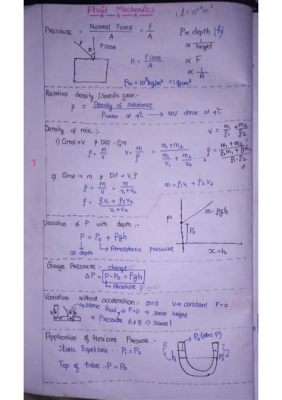 Fluid Mechanics
1 L = 10⁻³ m³
Pressure = Normal Force / A = F / A
F
F cosθ
P₁ = F cosθ / A
ρw = 10³ kg/m³ = 1 g/cm³
depth (h)
∝ 1 / height
∝ F
∝ 1 / A
Relative density / Specific grav:
ρ = Density of Substance / ρwater at 4°C → max dense at 4°C
Density of mix:-
1) Const → V ρ Diff -
ρ = m / V V = m / ρ = (m₁ + m₂) / (m₁/ρ₁ + m₂/ρ₂)
V = m₁/ρ₁ + m₂/ρ₂
2) Const → m Diff → V, ρ
ρ = m / V = m / (V₁ + V₂)
m = ρ₁V₁ + ρ₂V₂
ρ = (ρ₁V₁ + ρ₂V₂) / (V₁ + V₂)
1
Variation of P with depth:-
P = P₀ + ρgh
at depth Atmospheric pressure
P
P₀
m = ρg
x = h
Gauge Pressure:- change
ΔP = P - P₀ = ρgh
Absolute P
Variation without acceleration:- a=0 v → constant F=0
same fluid, a F=0 → same height
→ Pressure A & B → same
Application of Horizon Pressure:-
Static Equilibria P₁ = P₂
Top of tube → P = P₀
P₀ (atm P)